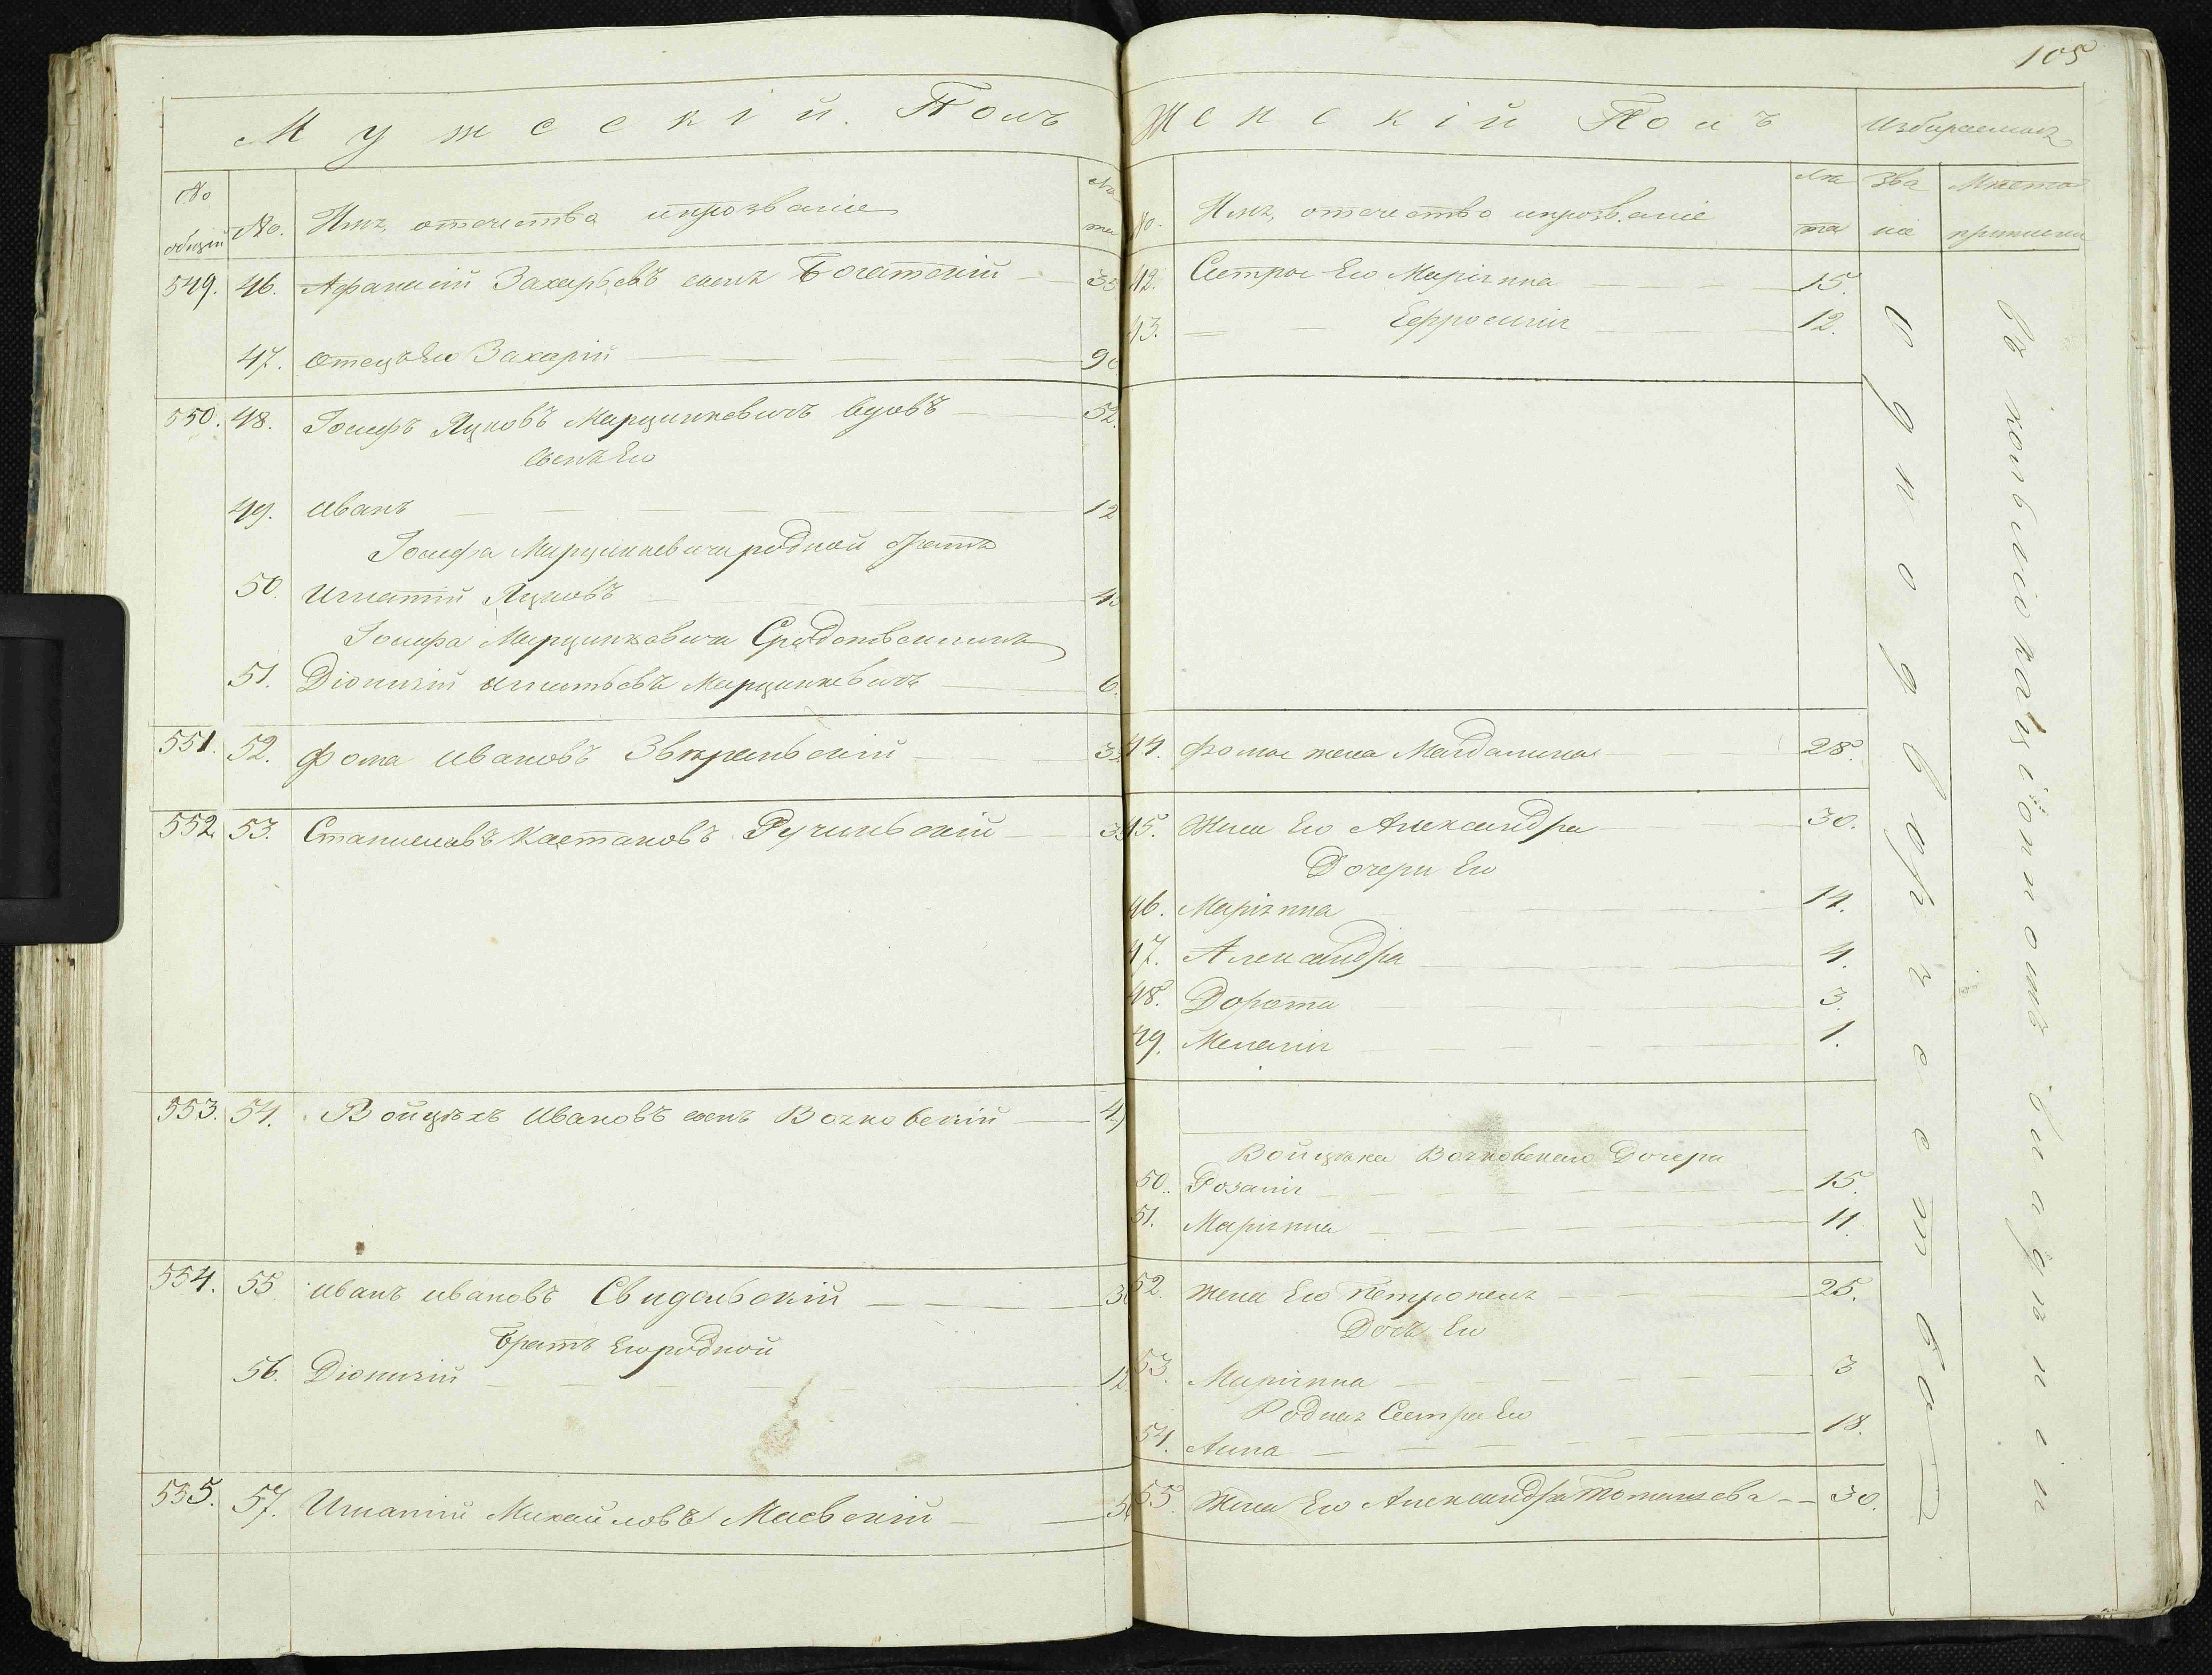 105
Мужеский Полъ
№ общій № Имя, отечество ипрозваніе Лѣта
549. 46. Афанасій Захарьевъ сынъ Богатскій 35
47. Отецъ Его Захарій 90
550. 48. Іосифъ Яцковъ Марцинкевичъ вдовъ 52.
Сынъ Его
49. Иванъ 12
Іосифа Марцинкевича родной братъ
50. Игнатій Яцковъ
Іосифа Марцинкевича
51. Діонизій Игнатьевъ Марцинкевичъ 6.
551. 52. Фома Ивановъ
552. 53. Станиславъ Каетановъ Ручинскій
553. 54. Войцѣхъ Ивановъ сынъ Вочковскій
554. 55 Иванъ Ивановъ Свидельскій
Братъ Его родной
56. Діонизій 12
555. 57. Игнатій Михайловъ Маевскій
Женскій Полъ Избираемыя
№. Имя, отечество ипрозваніе Лѣта Зва ніе Мѣсто приписки
42. Сестры Его Маріянна 15.
43. Ефросинія 12.
44. Фомы жена Магдалина 28.
45. Жена Его Александра 30.
Дочери Его
46. Маріянна 14.
47. Александра 4.
48. Дорота 3.
49. Меланія 1.
Войцѣха Вочковскаго Дочери
50. Розалія 15.
51. Маріянна 11.
52. Жена Его Петронеля 25.
Дочь Его
53. Маріянна 3
Родная Сестра Его
54. Анна 18.
55. Жена Его Александра Томашева 30.
однодворческое
Въ конфискаціонномъ владѣніи